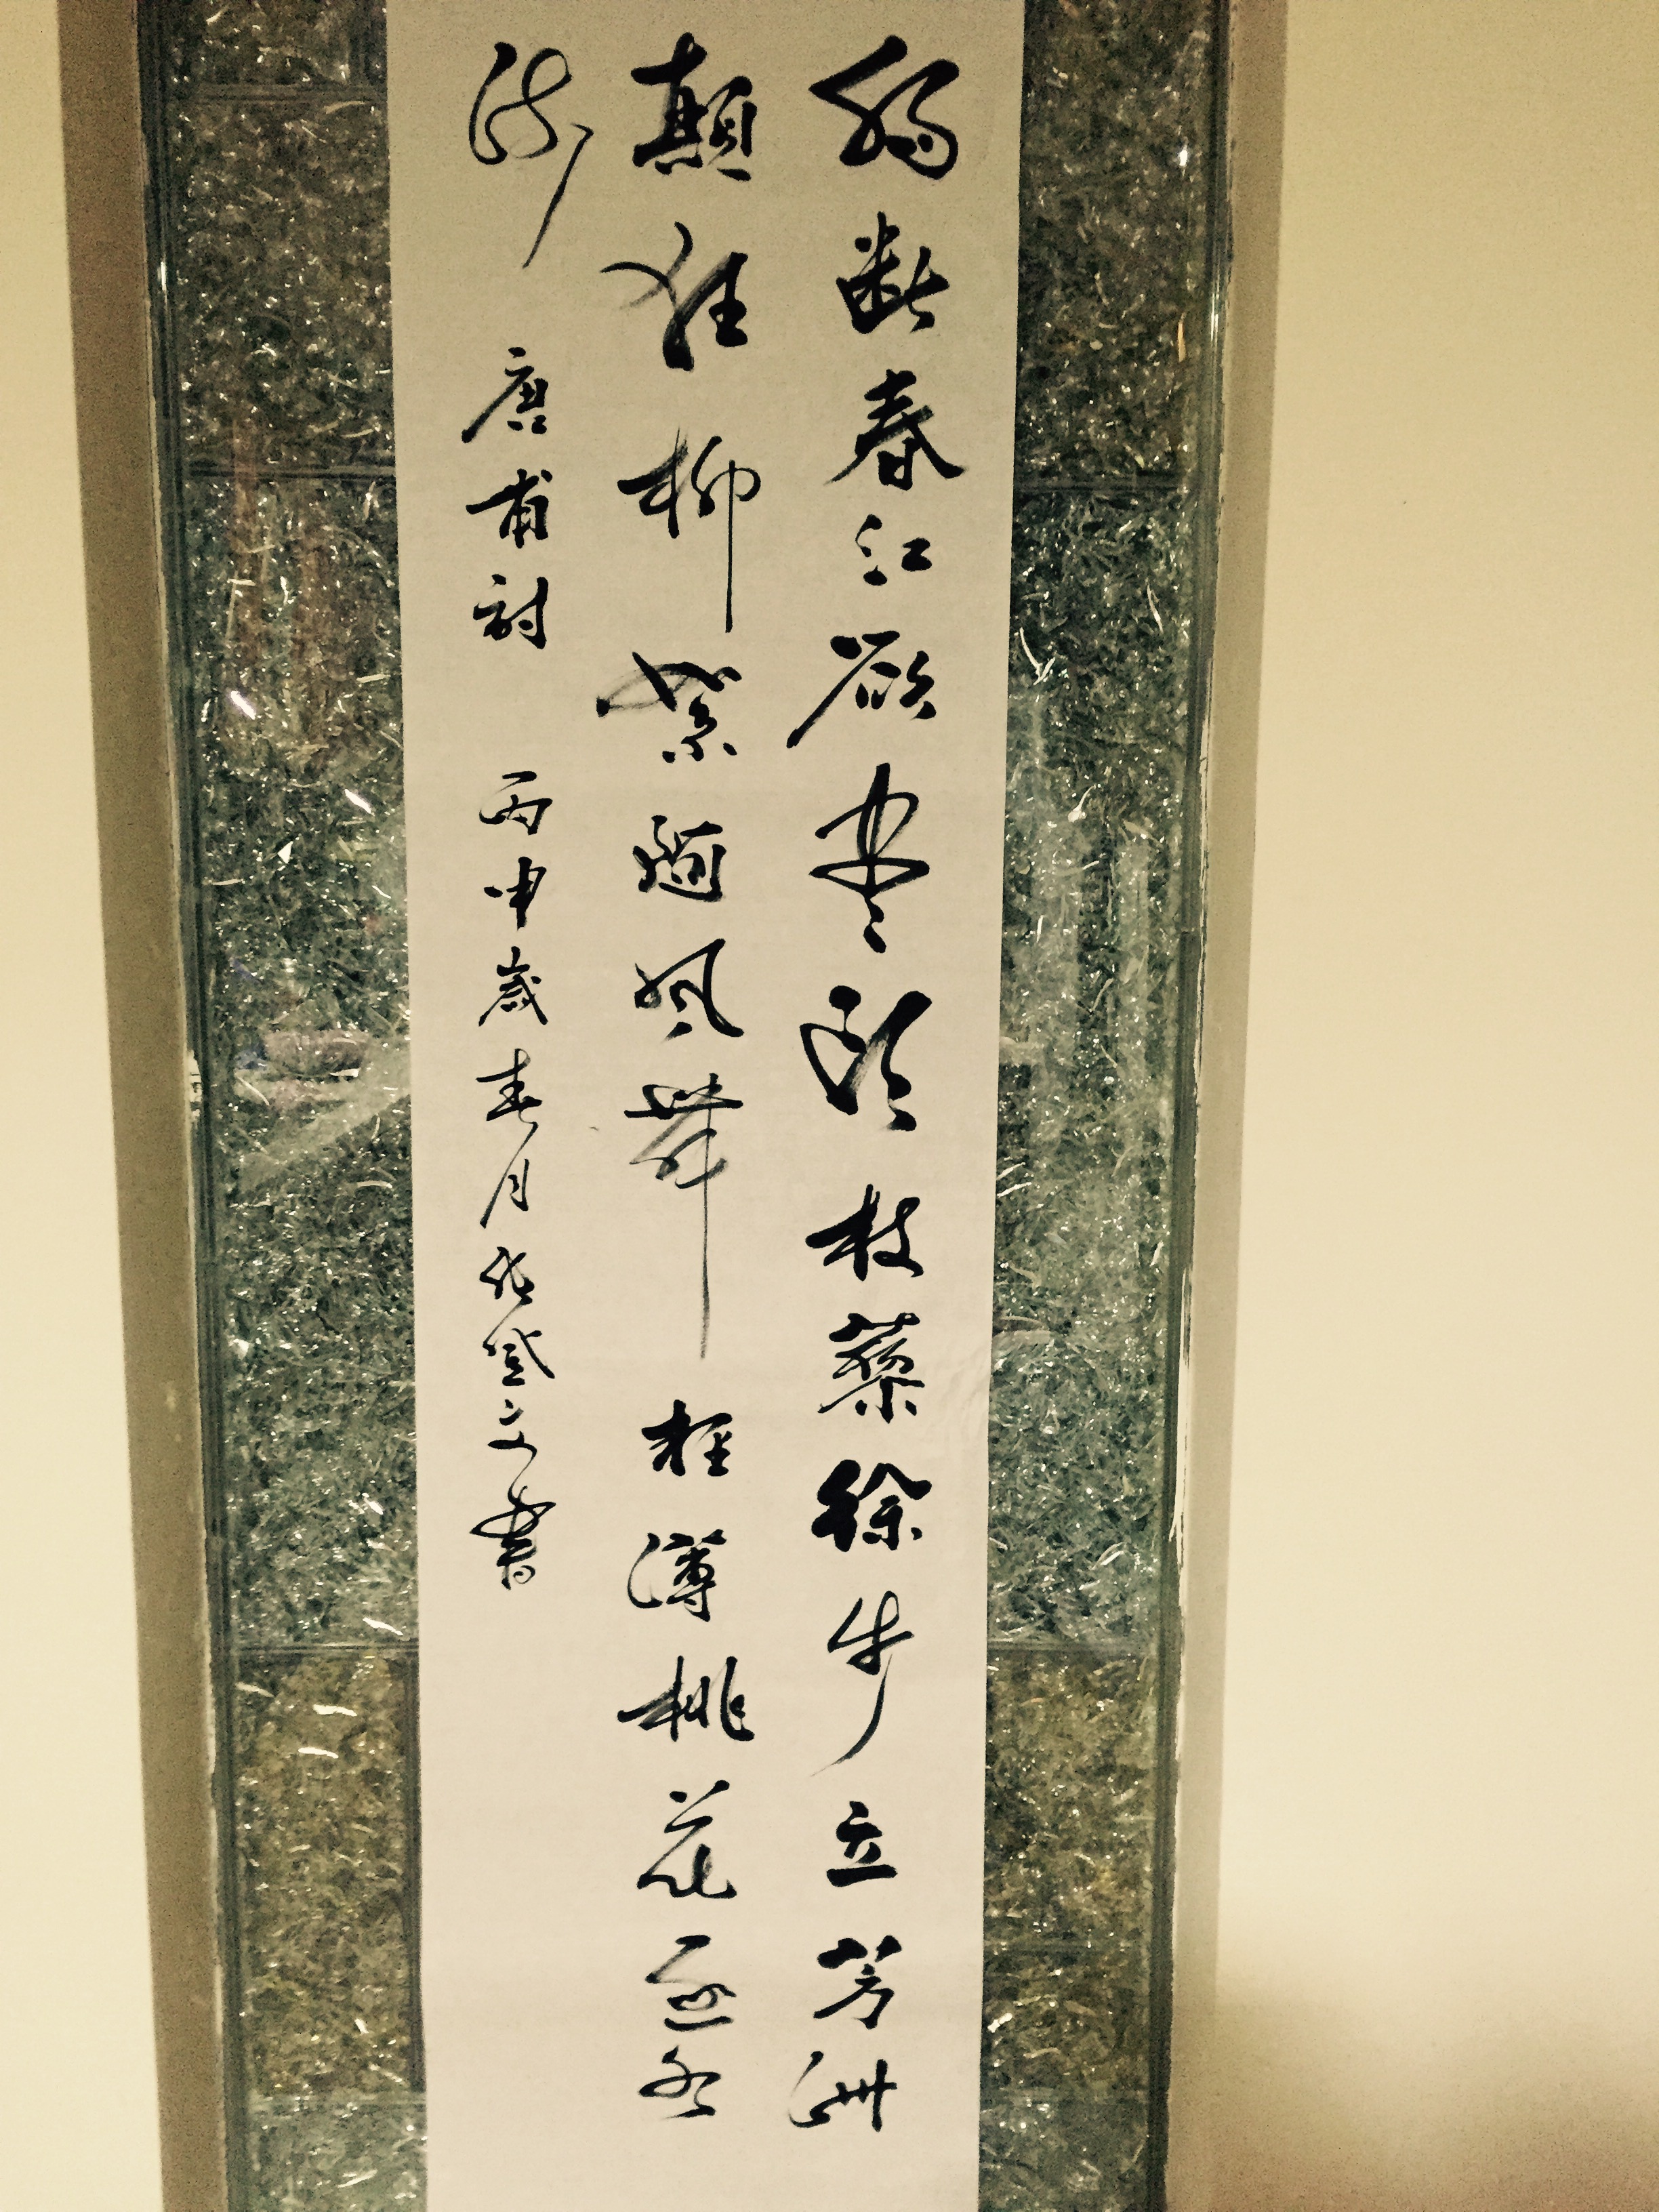 腸斷春江欲盡頭杖藜徐步立芳洲
顛狂柳絮隨風舞輕薄桃花逐水
流 唐甫詩 丙申歲春月文書